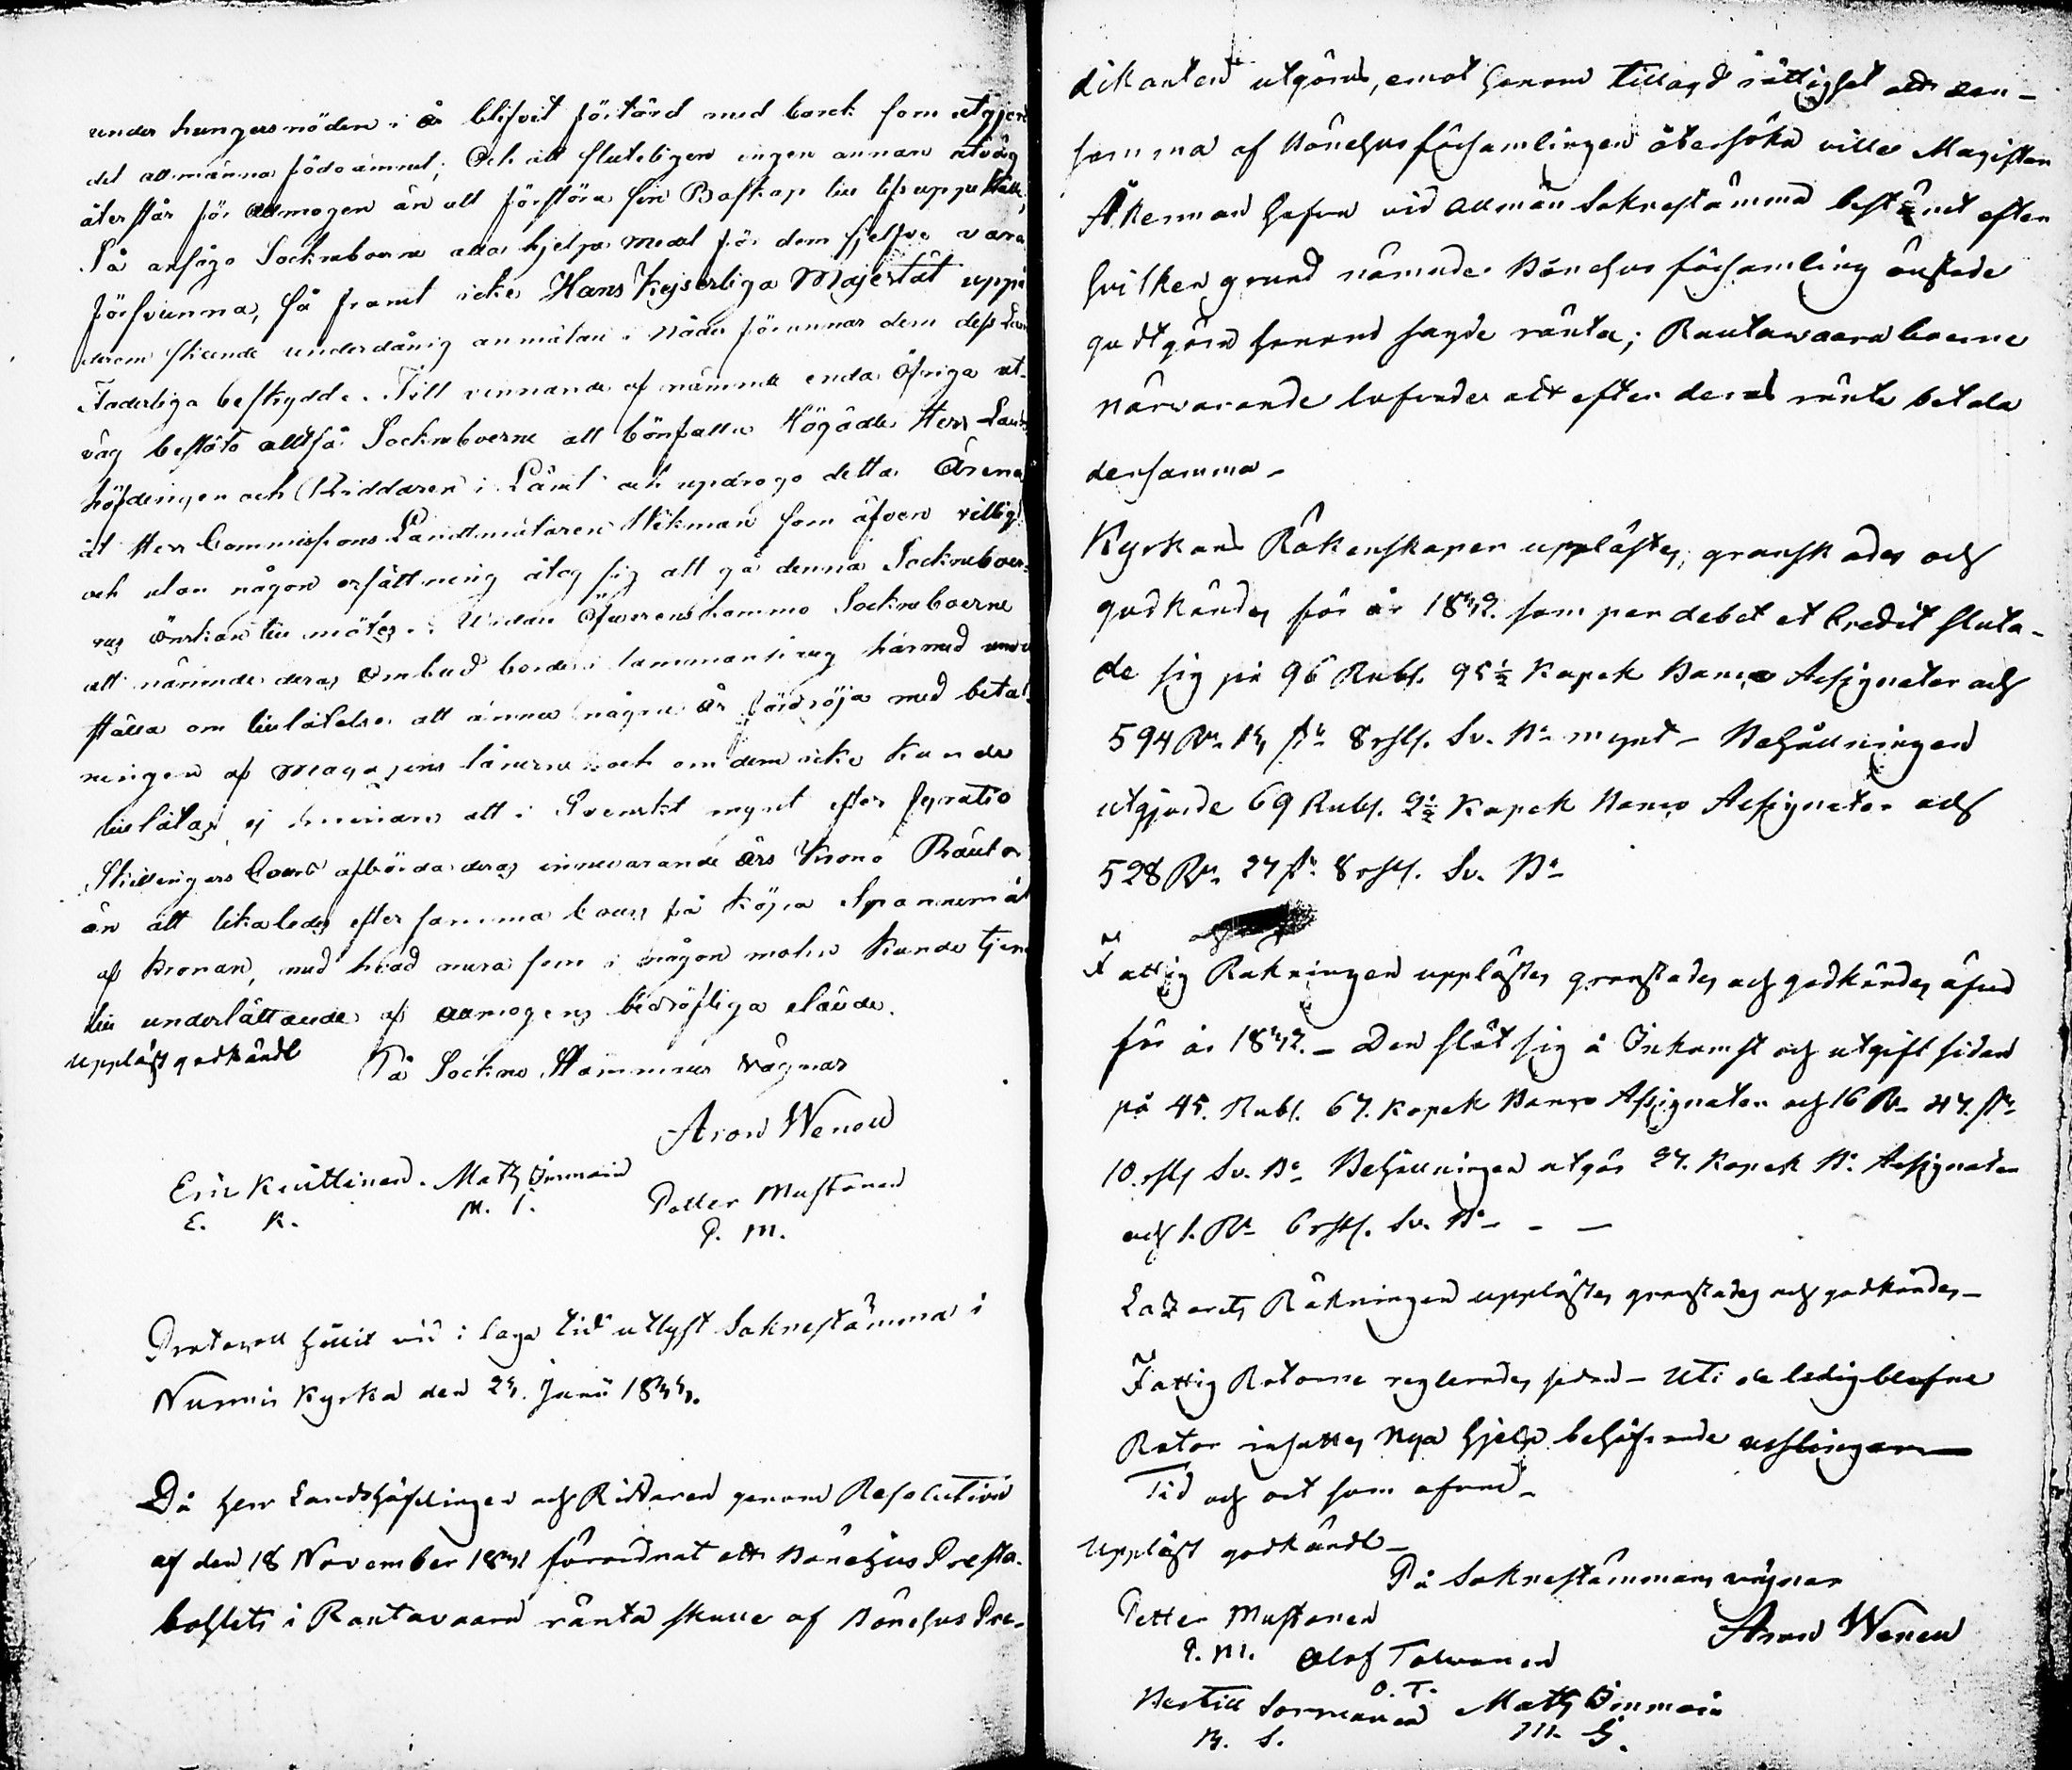 under hungersnöden i år blifvit förtärd med barck som utgjort
det allmänna födoämnet; Och att sluteligen ingen annan utväg
återstår för Allmogen än att förstöra sin Boskap till lifs uppehälle,
Så ansågo Sockneboerne alla hjelpe medel för dem sjelfve vara
försvunna, så framt icke Hans Kejserliga Majestät uppå
derom skeende underdånig anmälan i Nåder förunnar dem dess Lands
Faderliga beskydd. Till vinnande af nämnde enda öfriga ut-
väg beslöto alltså Socknboerne att bönfalla Högädle Herr Lands-
höfdingen och Riddaren i Länet och updrogo detta Ärende
åt Herr Commissions Landtmätaren Wikman som äfven villigt
och utan någon ersättning åtog sig att gå denna Socknboer-
nas önskan till mötes. Vidare öfverenskommo Socknboerne
att nämnde deras Ombud borde i sammanhang härmed
ställa om tillåtelse att ännu några år fördröja med betal-
ningen af Magazins lånerne och om dem icke kunde
tillåtas ej mindre att i Svenskt mynt efter fyratio
Skillingars Cours afbörda deras innevarande års Krono Räntor
än att likaledes efter samma cours få köpa Spannemål
af Kronan, med hvad mera som i någon mohn kunde tjena
till underlättande af allmogens bedröfliga elände.
Uppläst godkändt
På Sockne Stämmans vägnar
Aron Wenell
Eric Knuttinen. Mats Immoin
E. K. M. I.
Petter Mustonen
P. M.
Protocoll hållit vid i laga tid utlyst Soknestämma i
Nurmis Kyrka den 24. Junii 1844.
Då Herr Landshöfdingen och Riddaren genom Resolution
af den 18 November 1841 förordnat att Nönehus Presta-
bohlets i Rautavaara ränta skulle af Nönehus Pre-
dikanten utgöras, emot honom tillagd rättighet att den-
samma af Nönehus församlingen återsöka ville Magistern
Åkerman hafva vid allmän Soknestämma bestämt efter
hvilken grund nämnde Nönehus församling önskade
godtgöra honom sagde ränta; Rautawaara boerne
närvarande lofvade att efter deras ränte betala
densamma-
Kyrkans Räkenskaper upplästes, granskades och
godkändes för år 1842. som per debet et Credit sluta-
de sig på 96 Rubl. 95½ Kopek Banco Assignater och
594 Rr 14 sk 8 rst. Sv. Bo mynt - Behållningen
utgjorde 69 Rubl. 2½ Kopek Banco Assignater och
528 Rr 27 sk 8 rst. Sv. Bo
Fattig Räkningen upplästes granskades och godkändes äfven
för år 1842. - Den slöt sig å Inkomst och utgift sidan
på 45. Rubl. 67. Kopek Banco Assignater och 16 Rr 47. sk
10. rst Sv. Bo Behållningen utgör 27. Kopek Bo Assignater
och 1. Rr 6 rst. Sv. Bo - - -
Lazarets Räkningen upplästes granskades och godkändes-
Fattig Rotorne reglerades sedan - Uti de ledigblefne
Rotor insattes nya hjelp behöfvande usslingar
Tid och ort som ofvan-
Uppläst godkändt-
På Soknestämmans vägnar
Aron Wenell
Petter Mustonen
P. M. Olof Tolwanen
O. T.
Bertill Sormunen Mats Immoin
B. S. M. I.